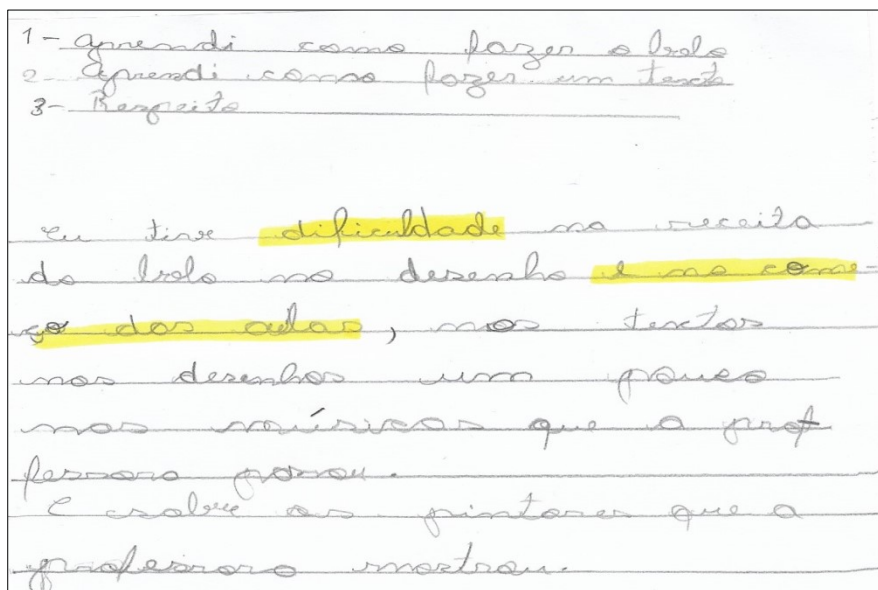 1- aprendi como fazer o bolo
2- Aprendi como fazer um texto
3- Respeito
Eu tive dificuldade na receita
do bolo no desenho e no come-
ço das aulas, nos textos
nos desenhos um pouco
nas músicas que a prof
fessora passou.
E sobre os pintores que a
professora mostrou.